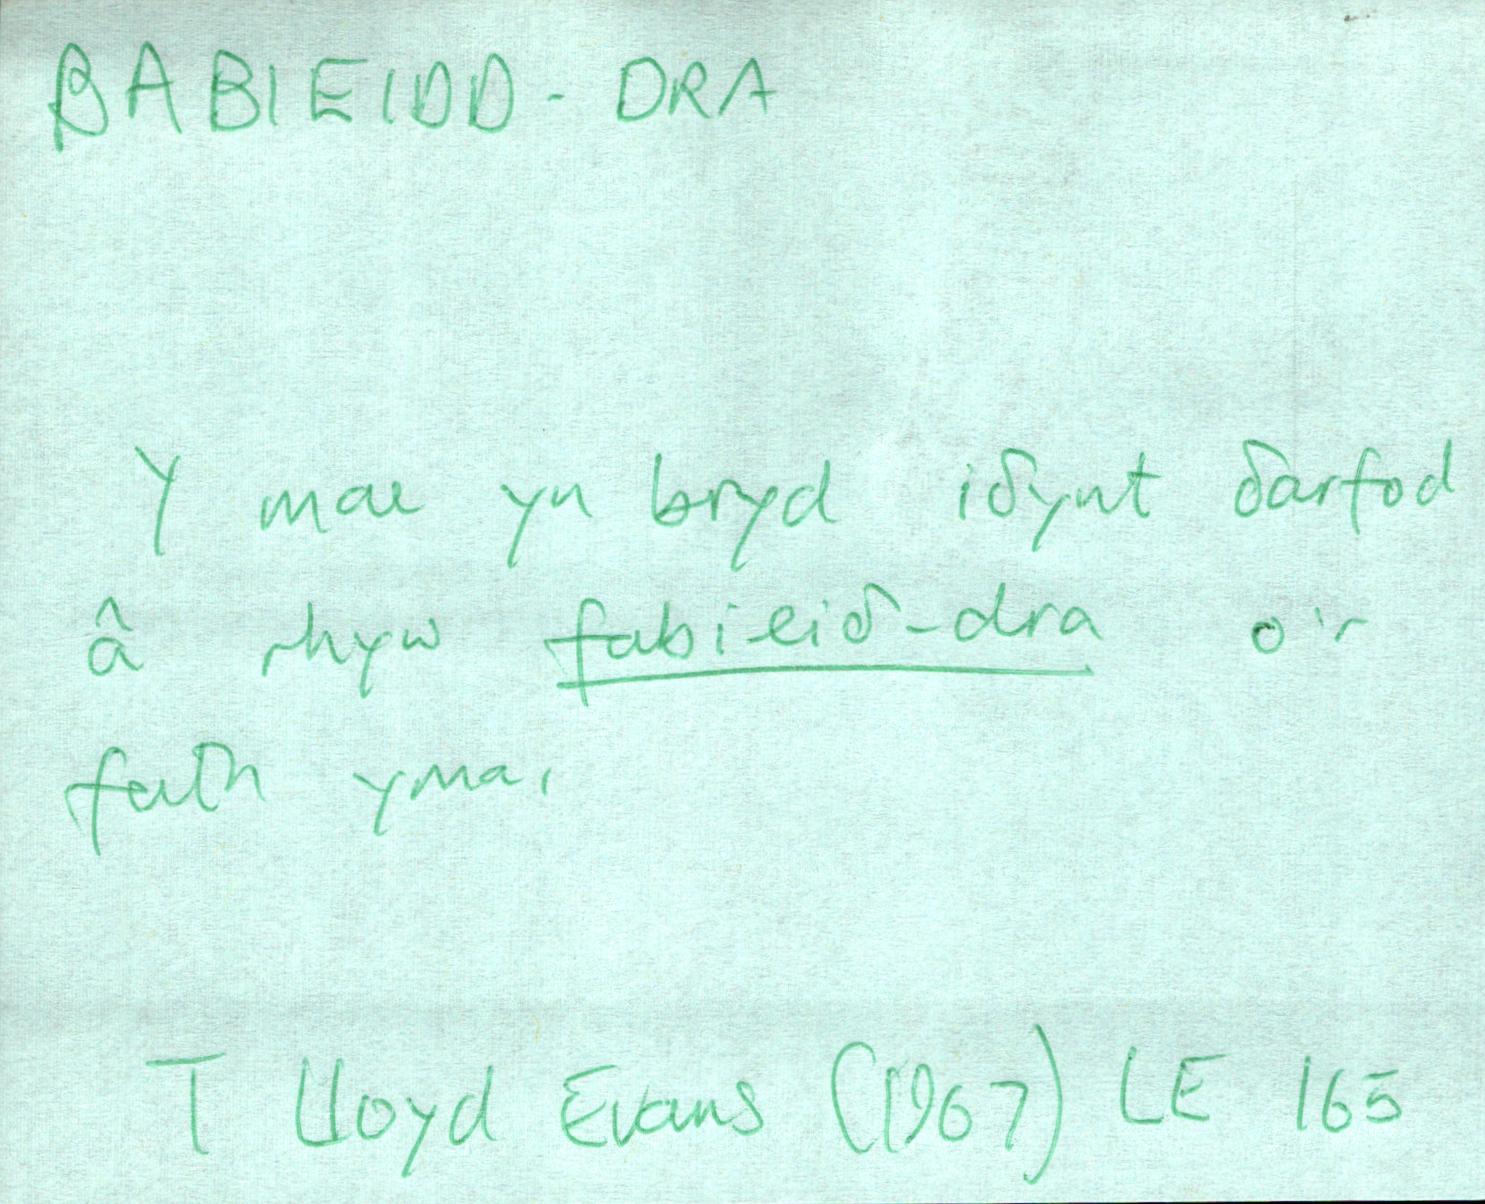 BABIEIDD-DRA
Y mae yn bryd iδynt δarfod
â rhyw fabieiδ-dra o'r
fath yma,
T Lloyd Evans (1967) LE 165